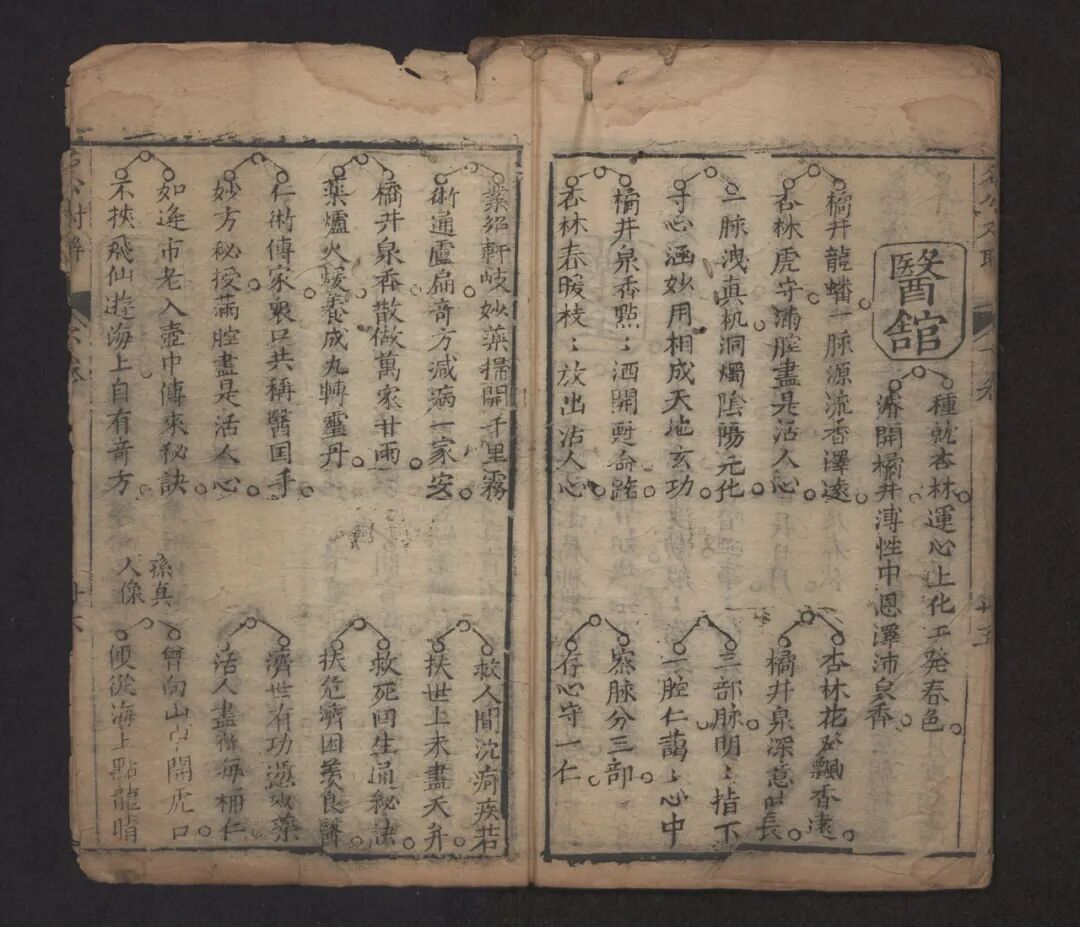 醫舘
種就杏林運心上化工発春色
濬開橘井溥性中恩澤沛泉香
橘井龍蟠一脉源流香澤遠
杏林虎守滿腔盡是活人心
杏林花發飄香遠
橘井泉深意味長
一脉洩真机洞燭陰陽元化
寸心涵妙用相成天地玄功
三部脉明﹔指下
一腔仁藹﹔心中
橘井泉香點﹔洒開甦命路
杏林春暖枝﹔放出活人心
察脉分三部
存心守一仁
業紹軒岐妙藥掃開千里霧
術通盧扁奇方減病一家安
救人間沈痾疾若
扶世上未盡天年
橘井泉香散做萬家甘雨
藥爐火煖養成九轉靈丹
救死回生通秘訣
扶危濟困羨良醫
仁術傳家衆口共称醫国手
妙方秘授滿腔盡是活人心
濟世有功憑妙藥
活人盡術海桐仁
如逢市老入壺中傳來秘訣
不挾飛仙遊海上自有竒方
孫真
人像
曾向山中開虎口
便從海上點龍睛